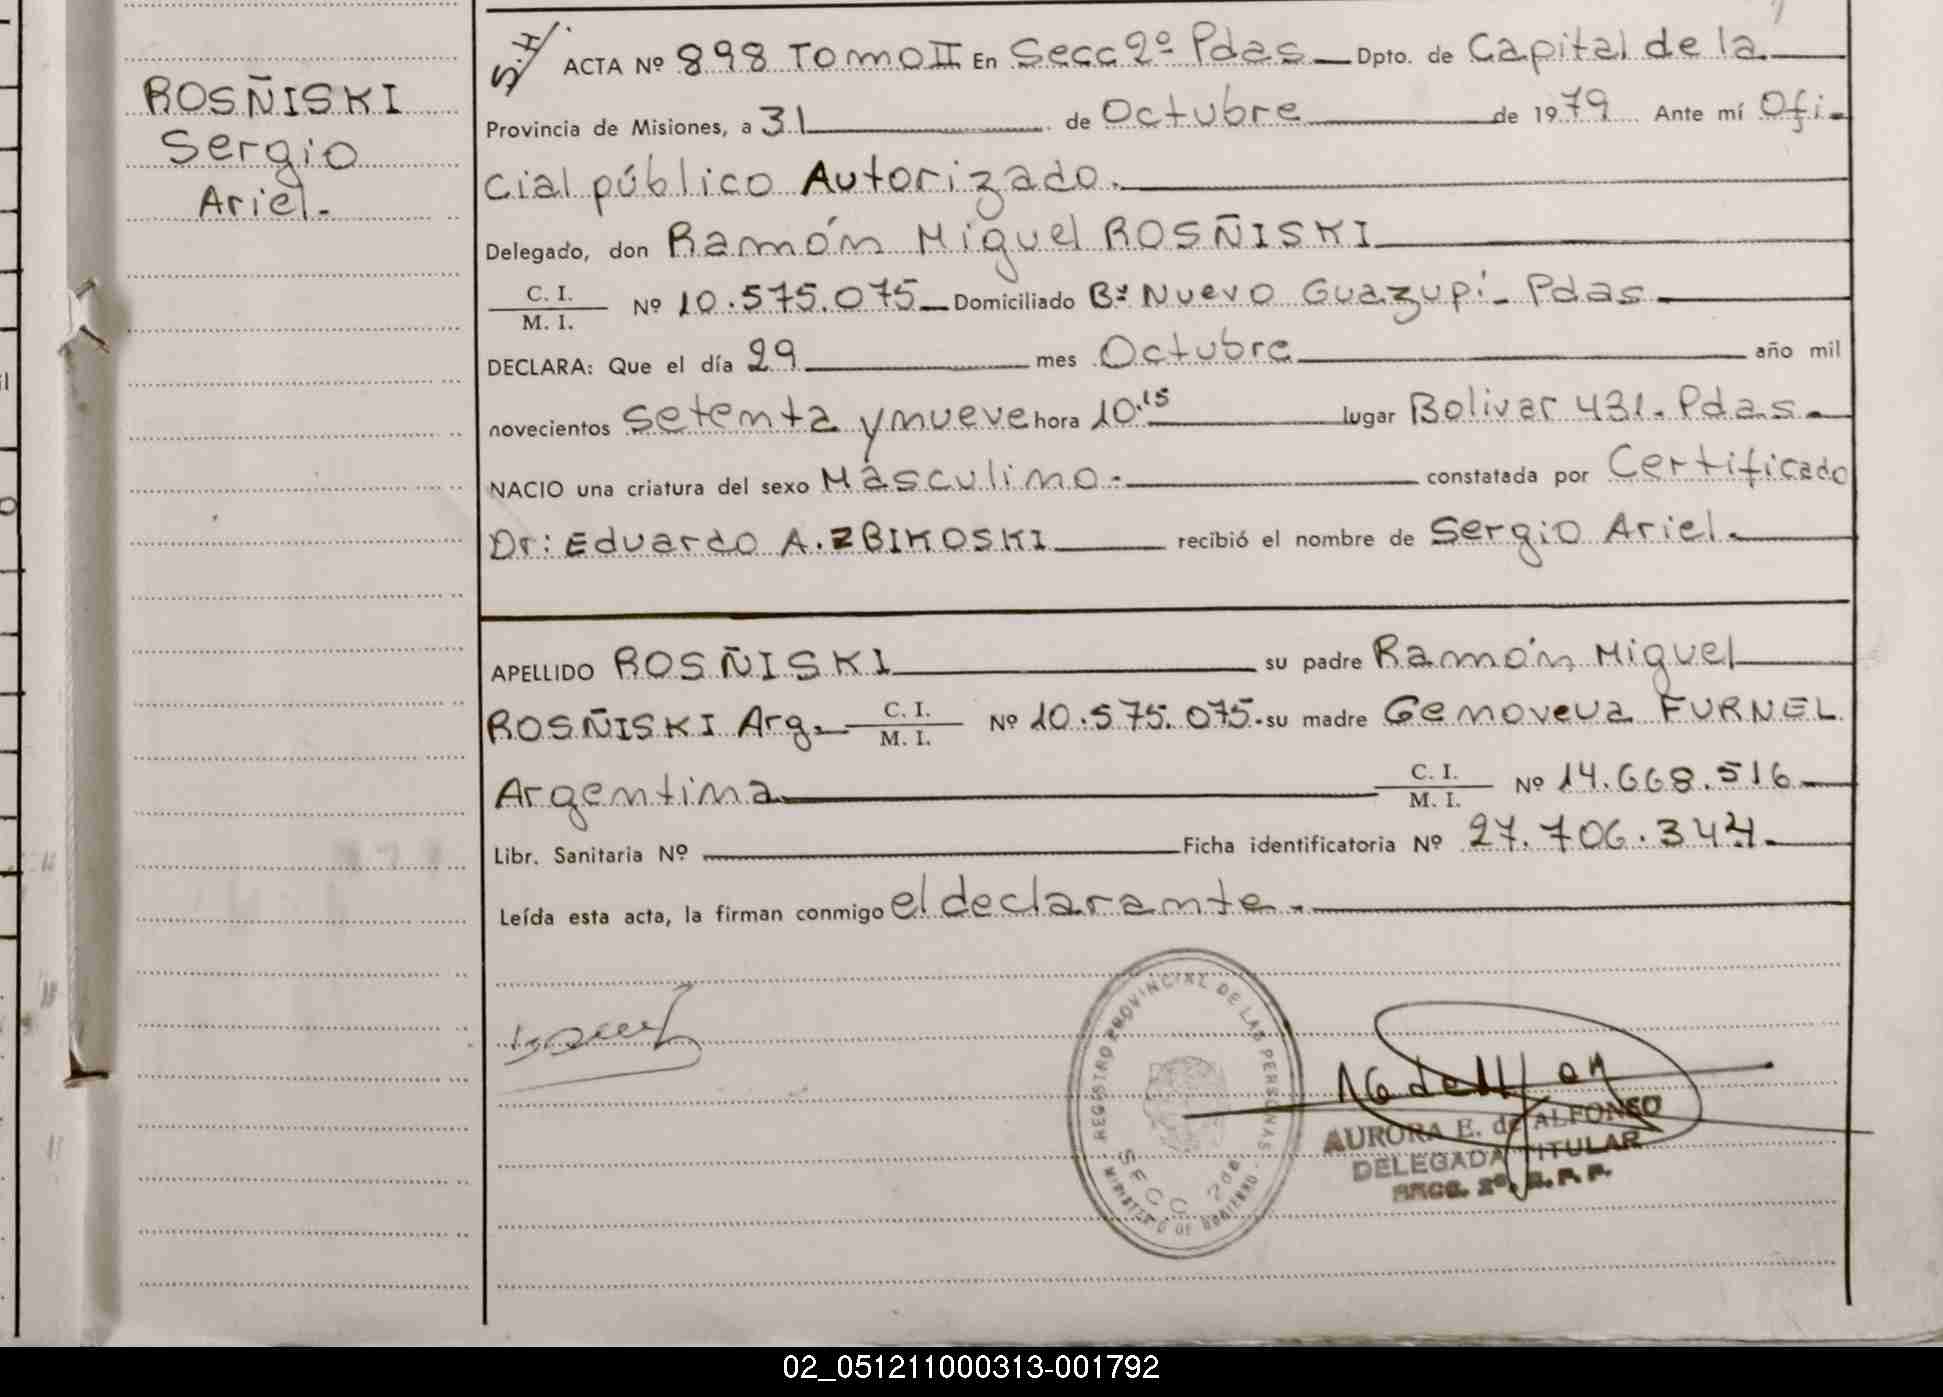 ROSÑISKI
Sergio
Ariel.-
S.H/
ACTA Nº 898 Tomo II En Secc 2º Pdas Dpto. de Capital de la
Provincia de Misiones, a 31 de Octubre de 1979 Ante mí Ofi-
cial público Autorizado.
Delegado, don Ramón Miguel ROSÑISKI
C. I.
M. I. Nº 10.575.075 Domiciliado Bº Nuevo Guazupí - Pdas
DECLARA: Que el día 29 mes Octubre año mil
novecientos setenta y nueve hora 10.15 lugar Bolivar 431. Pdas.
NACIO una criatura del sexo Masculino.- constatada por Certificado
Dr: Eduardo A. ZBIKOSKI recibió el nombre de Sergio Ariel.
APELLIDO ROSÑISKI su padre Ramón Miguel
ROSÑISKI Arg. C. I. M. I. Nº 10.575.075. su madre Genoveva FURNEL
Argentina C. I. M. I. Nº 14.668.516
Libr. Sanitaria Nº Ficha identificatoria Nº 27.706.344.
Leída esta acta, la firman conmigo el declarante.-
REGISTRO PROVINCIAL DE LAS PERSONAS
SECC. 2da
MINISTERIO DE GOBIERNO
AURORA E. de ALFONSO
DELEGADA TITULAR
SECC. 2º. R. P. P.
02_051211000313-001792